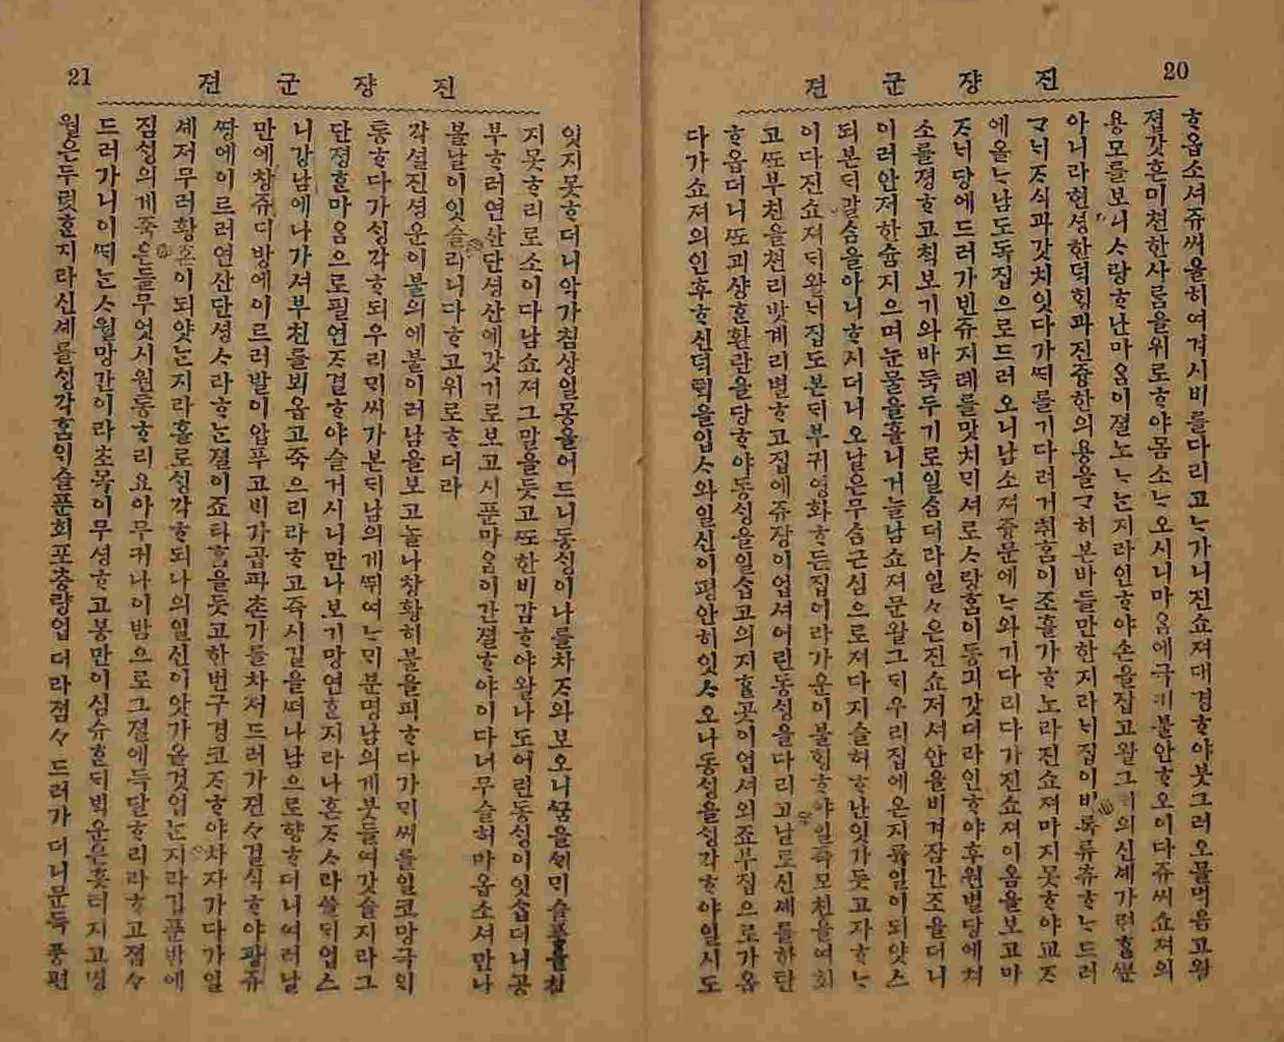 20
진쟝군젼
ᄒᆞ옵소셔쥬씨올히여겨시비를다리고ᄂᆞ가니진쇼져대경ᄒᆞ야붓그러오믈먹음고왈
졉갓흔미쳔한사ᄅᆞᆷ을위로ᄒᆞ야몸소ᄂᆞ오시니마ᄋᆞᆷ에극히불안ᄒᆞ오이다쥬씨쇼져의
용모를보니ᄉᆞ랑ᄒᆞ난마ᄋᆞᆷ이졀노ᄂᆞᄂᆞᆫ지라인ᄒᆞ야손을잡고왈그ᄃᆡ의신셰가련ᄒᆞᆯᄲᅮᆫ
아니라현셩한덕ᄒᆡᆼ과진즁한의용을ᄀᆞ히본바들만한지라ᄂᆡ집이비록류츄ᄒᆞᄂᆞ드러
ᄀᆞᄂᆡᄌᆞ식과갓치잇다가ᄯᆡ를기다려거취ᄒᆞᆷ이조흘가ᄒᆞ노라진쇼져마지못ᄒᆞ야교ᄌᆞ
에올ᄂᆞ남도독집으로드러오니남소져즁문에ᄂᆞ와기다리다가진쇼져이옴을보고마
ᄌᆞᄂᆡ당에드러가빈쥬지례를맛치ᄆᆡ셔로ᄉᆞ랑ᄒᆞᆷ이동긔갓더라인ᄒᆞ야후원별당에쳐
소를졍ᄒᆞ고척보기와바둑두기로일삼더라일々은진쇼져셔안을비겨잠간조을더니
이러안저한슘지으며눈물을흘니거늘남쇼져문왈그ᄃᆡ우리집에온지륙일이되얏스
되본ᄃᆡ갈심을아니ᄒᆞ시더니오날은무슴근심으로져다지슬허ᄒᆞ난잇가듯고자ᄒᆞᄂᆞ
이다진쇼져ᄃᆡ왈ᄂᆡ집도본ᄃᆡ부귀영화ᄒᆞ든집이라가운이불ᄒᆡᆼᄒᆞ야일즉모친을여희
고ᄯᅩ부친을쳔리밧게리별ᄒᆞ고집에쥬장이업셔어린동ᄉᆡᆼ을다리고날로신셰를하탄
ᄒᆞ옵더니ᄯᅩ괴샹ᄒᆞᆫ환란을당ᄒᆞ야동ᄉᆡᆼ을일습고의지ᄒᆞᆯ곳이업셔외죠부집으로가옵
다가쇼져의인후ᄒᆞ신덕ᄐᆡᆨ을입ᄉᆞ와일신이평안히잇ᄉᆞ오나동ᄉᆡᆼ을ᄉᆡᆼ각ᄒᆞ야일시도
21
진쟝군젼
잇지못ᄒᆞ더니악가침상일몽을어드니동ᄉᆡᆼ이나를차ᄌᆞ와보오니ᄭᅮᆷ을ᄭᆡᄆᆡ슬품을침
지못ᄒᆞ리로소이다남쇼져그말을듯고ᄯᅩ한비감ᄒᆞ야왈나도어린동ᄉᆡᆼ이잇습더니공
부ᄒᆞ러연산단셩산에갓기로보고시푼마ᄋᆞᆷ이간졀ᄒᆞ야이다너무슬허마옵소셔만나
볼날이잇슬리니다ᄒᆞ고위로ᄒᆞ더라
각셜진셩운이불의에불이러남을보고놀나창황히불을피ᄒᆞ다가ᄆᆡ씨를일코망극ᄋᆡ
통ᄒᆞ다가ᄉᆡᆼ각ᄒᆞ되우리ᄆᆡ씨가본ᄃᆡ남의게ᄯᅱ여ᄂᆞᄆᆡ분명남의게붓들여갓슬지라그
단졍ᄒᆞᆫ마ᄋᆞᆷ으로필연ᄌᆞ결ᄒᆞ야슬거시니만나보기망연ᄒᆞᆫ지라나혼ᄌᆞᄉᆞ라쓸ᄃᆡ업스
니강남에나가셔부친를뵈옵고죽으리라ᄒᆞ고즉시길을ᄯᅥ나남으로향ᄒᆞ더니여러날
만에창쥬디방에이르러발이압푸고비가곱파촌가를차저드러가젼々걸식ᄒᆞ야광쥬
ᄯᅡᆼ에이르러연산단셩ᄉᆞ라ᄒᆞᄂᆞᆫ졀이죠타ᄒᆞᆷ을듯고한번구경코ᄌᆞᄒᆞ야차자가다가일
셰저무러황혼이되얏ᄂᆞᆫ지라홀로ᄉᆡᆼ각ᄒᆞ되나의일신이앗가올것업ᄂᆞᆫ지라깁푼밤에
짐ᄉᆡᆼ의게죽은들무엇시원통ᄒᆞ리요아무커나이밤으로그졀에득달ᄒᆞ리라ᄒᆞ고졈々
드러가니이ᄯᆡᄂᆞᆫᄉᆞ월망간이라초목이무셩ᄒᆞ고봉만이심슈ᄒᆞᆫᄃᆡ빅운은흣터지고명
월은두렷ᄒᆞᆫ지라신셰를ᄉᆡᆼ각ᄒᆞᆷᄋᆡ슬푼회포층량업더라졈々드러가더니문득풍편